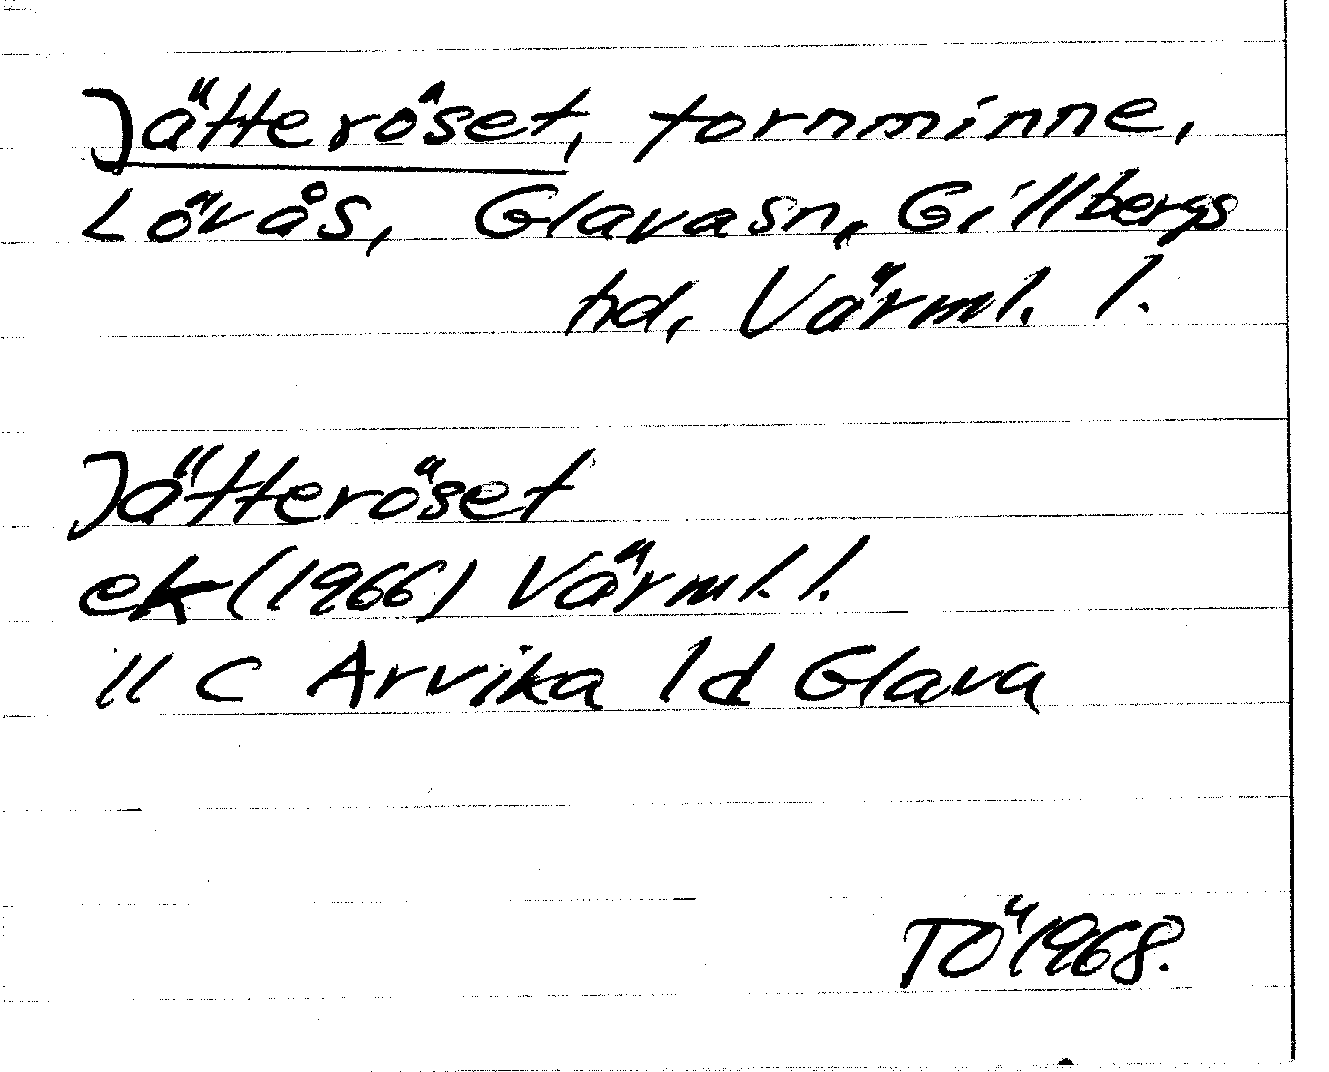 Jätteröset, fornminne,
Lövås, Glava sn, Gillbergs
hd, Värml. l.
Jätteröset
ek (1966) Värml. l.
11 C Arvika 1 d Glava
TÖ 1968.